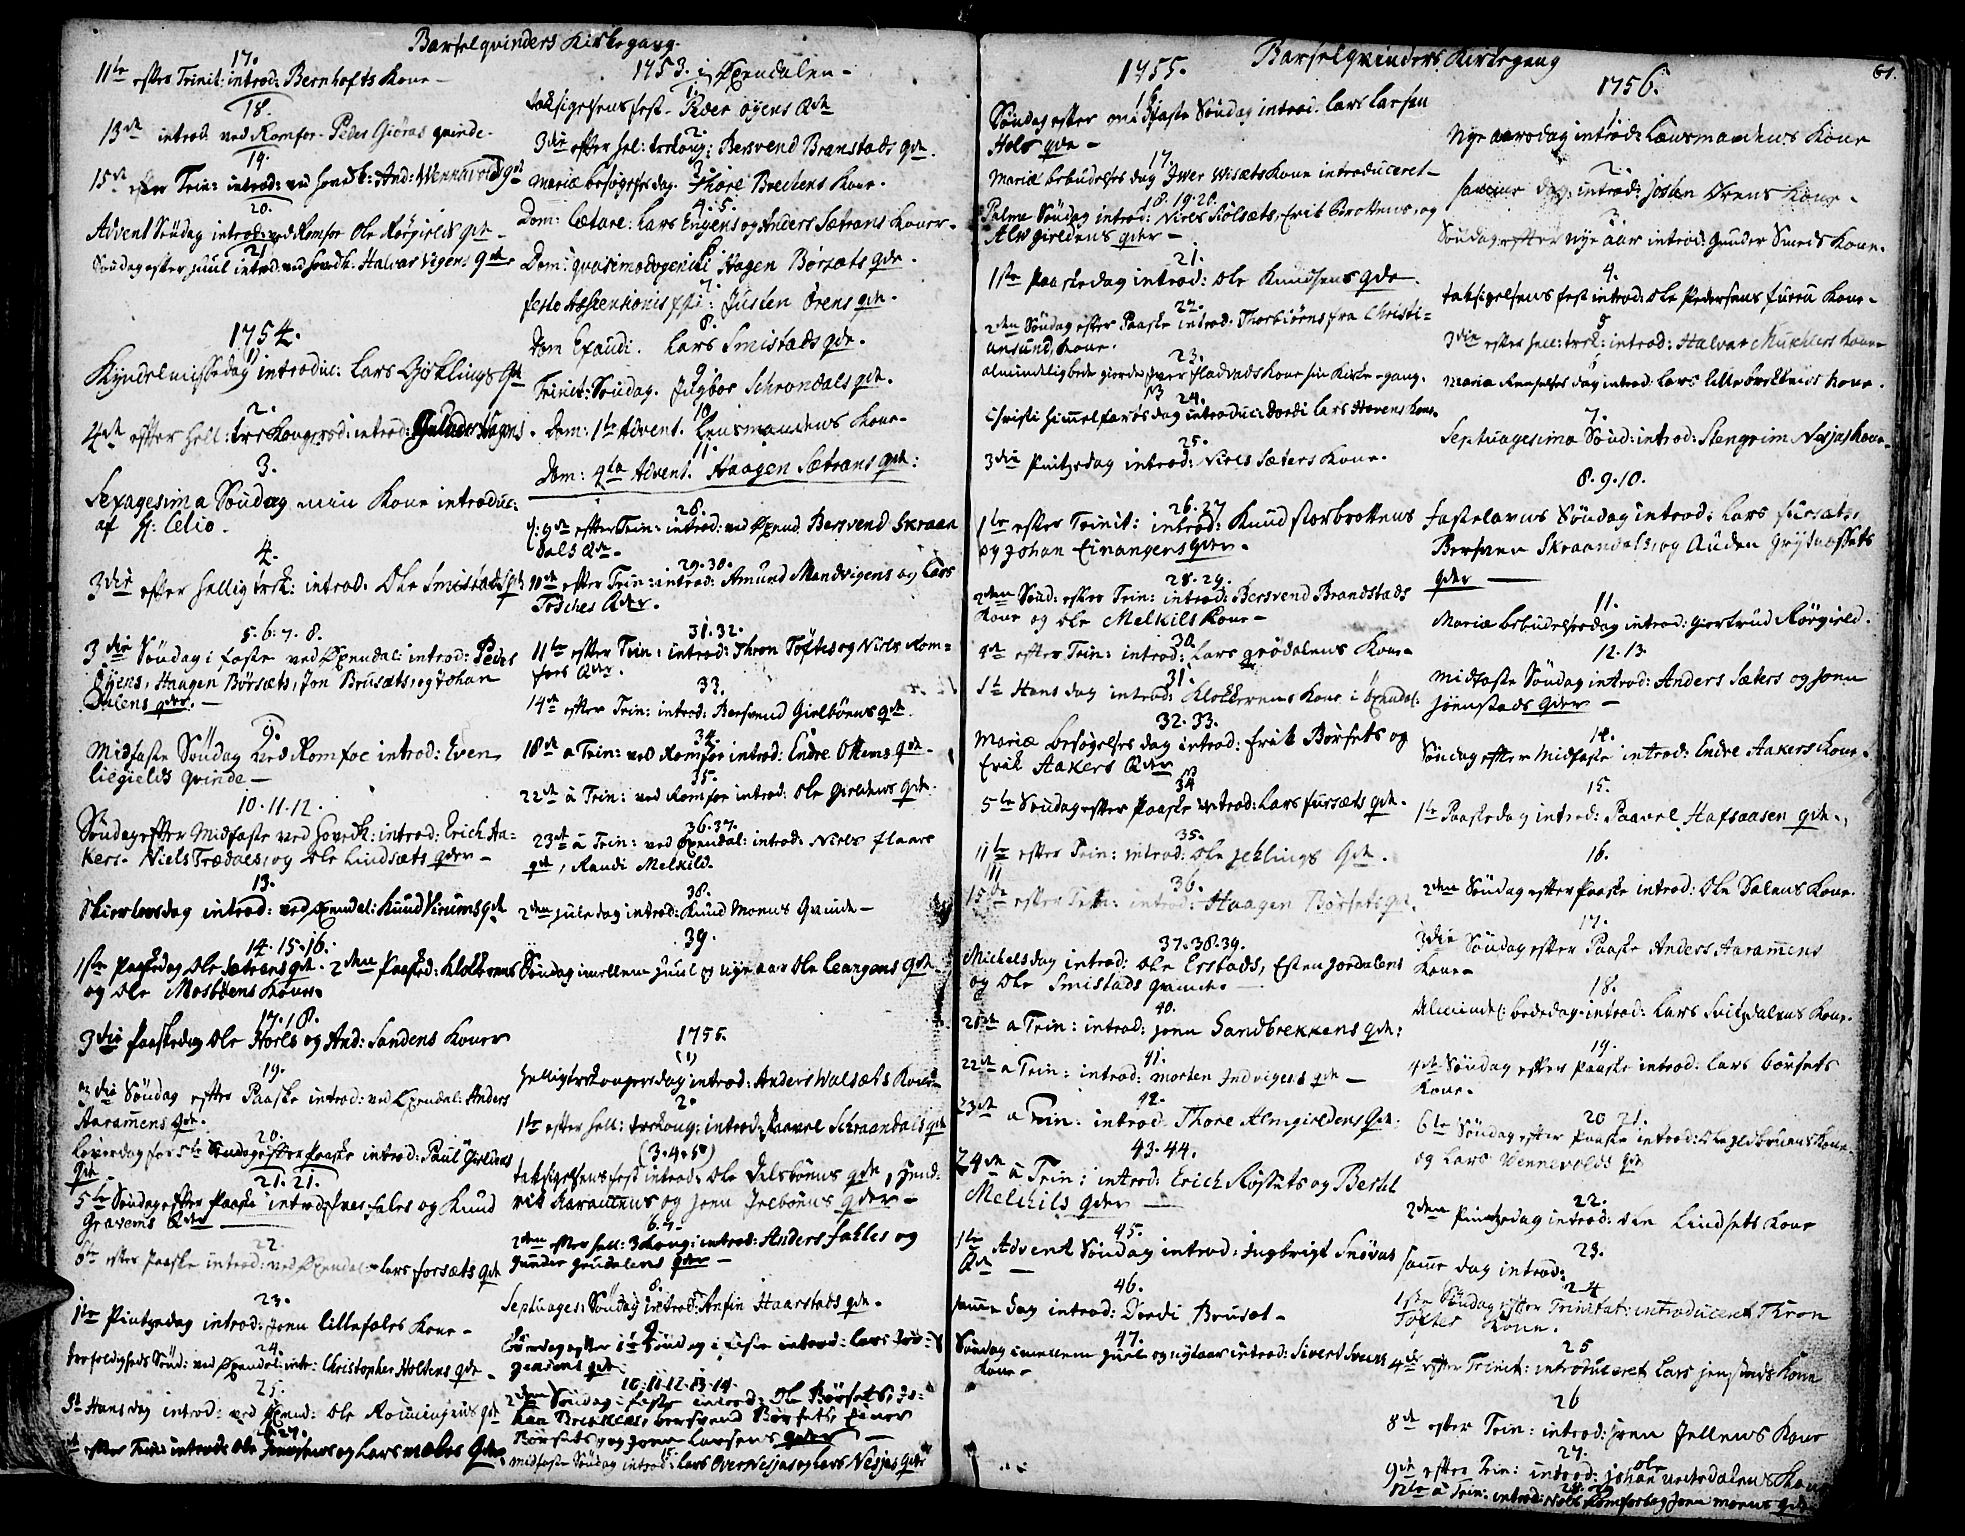 Barselqvinders Kirkegang.
17.
11te efter Trinit: introd: Bernhofts Kone
18.
13de introd: ved Romfor. Peder Giöras qvinde.
19.
15de efter Trin: introd: ved Hovedk: And: Wennevolds qde
20.
Advent Söndag introd: ved Romfor Ole Rörgields qde
21
Söndag efter Juul introd: ved Hovedk: Halvar Vigens qde
1754.
1
Kyndelmissedag introduc: Lars Gicklings qde
2.
4de efter hell: trekong: introd: Gunder Vagens
3.
Sexagesima Söndag min Kone introduc:
af H: Celio.
4.
3die efter hellig trek: introd. Ole Smistads qde
5. 6. 7. 8.
3die Söndag i faste ved Øxendal: introd: Peder
Öyens, Haagen Börsæts, Jon Brusæts, og Johan
Dalens qder.
9.
Midfaste Söndag ved Romfoe introd: Even
Liegields qvinde
10. 11. 12.
Söndag efter Midfaste ved Hovedk: introd: Erich Aa-
kers. Niels Trædals, og Ole Lindsæts qder
13.
Skiærtorsdag introd: ved Øxendal: Knud Virums qde
14. 15. 16.
1ste Paaskedag Ole Sætrens qde. 2den Paasked: Klokkerens
og Ole Mosböens Koner.
17. 18.
3die Paaskedag Ole Horls og And: Sandens Koner
19.
3die Söndag efter Paaske introd: ved Øxendal: Anders
Aaramens qde.
20.
Löverdag for 5te Söndag efter Paaske introd: Paul Gieldnes
qde
21. 21.
5te Söndag efter Paaske introd: Iver Fales og Knud
Gravems qder
22.
6te efter Paaske introd: ved Øxendal: Lars Forsæts qde
23.
1te Pintzedag introd: Jonn Lillefales Kone
24.
trefoldigheds Sönd: ved Øxendal: intr: Christopher Holtens qde
25.
St Hans dag introd: ved Øxend: Ole Romingens qde
efter Trin: introd: Ole og Lars Mæles qder
1753. i Øxendalen
1.
taksigelsens fest. Peder öyens qde
2.
3die efter hel: trekong: Bersvend Branstads qde.
3
Mariæ besögelses dag. Thore Brechens Kone.
4. 5.
Dom: Lætare: Lars Engens og Anders Sætrans Koner
6
Dom: quasimodogeniti Hagen Börsæts qde.
7.
festo Ascentionis Xsti: Justen Örens qde.
8.
Dom Exaudi. Lars Smistads qde.
9
Trinit: Söndag. Ingbor Schrondals qde.
10
Dom: 1te Advent. Lensmandens Kone
11.
Dom: 4ta Advent. Haagen Sætrans qde:
28.
9de efter Trin: introd: ved Øxend Bersvend Skraan
dals qde
29. 30.
10de efter Trin: introd: Amund Mandvigens og Lars
Tosches qder.
31. 32.
11te efter Trin: introd: Thron Toftes og Niels Rom-
fors qder.
33.
14de efter Trin: introd: Bersvend Gielbönes qde.
34.
18de a Trin: ved Romfor introd: Endre Ottems qde
35.
22de a Trin: ved Romfor introd: Ole Gieldnes qde
36. 37.
23de a Trin: ved Øxendal: introd: Niels Flaae
qde, Randi Melkild.
38.
2den Juledag introd: Knud Moens Qvinde
39.
Söndag imellem Juul og nye aar Ole qde
1755.
(1)
Helligtrekongersdag introd: Anders Walsæts Kone
2.
1te efter hell: trekong: introd: Paavel Schraandals qde
(3. 4. 5)
taksigelsens fest introd: Ole Dalsbönes qde, Hend-
rik Aaramens og Jonn Jelbönes qder
6. 7.
2den efter hell: 3Kong: introd: Anders Falles og
Gunder Grudalens qder
8.
Septuages: Söndag introd: Anfin Haarstads qde.
9
Löverdag efter 1te Söndag i faste introd: Lars
qde
10. 11. 12. 13. 14.
2den Söndag i faste introd: Ole Börsets, Jo-
han Brekkens, Bersvend Börsets, Einer
Börsets, og Jonn Larsens qder
15
midfaste Söndag introd: Lars OverNesjas og Lars Nesjas qder
Barselqvinders Kirkegang
61.
1755.
16
Söndag efter midfaste Söndag introd: Lars Larsen
Hols qde
17.
Mariæ bebudelses dag Iwer Wisæts Kone introduceret
18. 19. 20.
Palme Söndag introd: Niels Stölsæts, Erik Brottens, og
Alwgieldens qder
21.
1ste Paaskedag introd: Ole Knudsens qde.
22.
2den Söndag efter Paaske introd. Thorbiörns fra Christi-
ansund, Kone.
23.
almindeligbede giorde Iver Fladvads Kone sin Kirke-gang.
24.
Christi Himmelfarts dag introduc: Dordi Lars Hovens Kone.
25.
3die Pintzedag introd: Niels Sæters Kone.
26. 27
1te efter Trinit: introd: Knud Storbrottens
og Johan Einangens qder.
28. 29.
2den Sönd: efter Trin: introd: Bersvend Brandstads
Kone og Ole Melkils Kone
30.
4de efter Trin: introd: Lars Grödalens Kone
31.
St Hans dag introd: Klokkerens Kone i Øxendal:
32. 33.
Mariæ besögelses dag introd: Erik Börsets og
Erik Aakers qder
34
5te Söndag efter Paaske introd: Lars Fursæts qde.
35.
11te efter Trin: introd: Ole Jeklings qde.
36.
15de efter Trin: introd: Haagen Börsets qde.
37. 38. 39.
Michels dag introd: Ole Erstads, Esten Jordalens
og Ole Smistads qvinde.
40.
21de a Trin: introd: Jonn Sandbrekkens qde:
41.
22de a Trin: introd: Morten Indvigens qde
42.
23de a Trin: introd. Thore Almgieldens qde.
43. 44.
24de a Trin: introd: Erich Rössets og Bertel
Melchils qder
45.
1te Advent Söndag introd: Ingbrigt Snövas
qde
46.
samme dag introd: Dordi Brusæt
47.
Söndag imellem Juul og nytaar introd: Sivert
Kone
1756.
1
Nye aarsdag introd: Lænsmandens Kone
2.
samme dag introd: Josten Ørens Kone.
3
Söndag efter nye aar introd: Gunder Smeds Kone.
4.
taksigelsens fest introd: Ole Pedersens Furru Kone
5
3die efter hell: trek: introd: Halvar Mukhlers Kone
6
Mariæ Renselses dag introd: Lars Lillebrekkens Kone.
7.
Septuagesima Sönd: introd: Stengrim Nesjas Kone
8. 9. 10.
Fastelavns Söndag introd: Lars Fursæts,
Bersven Skraandals, og Auden Grytnessets
qder
11.
Mariæ bebudelsesdag introd: Giertrud Rörgield.
12. 13
Midfaste Söndag introd: Anders Sæters og Jonn
Jönstads qder
14.
Söndag efter Midfaste introd: Endre Aakers Kone.
15.
1te Paaskedag introd: Paavel Hafsaasen qde.
16.
2den Söndag efter Paaske introd: Ole Dalens Kone.
17.
3die Söndag efter Paaske Anders Aaramens
Kone
18.
Almindel: bededag introd: Lars Svitzdalens Kone.
19.
4de Söndag efter Paaske introd: Lars Börsets
Kone.
20 21.
6te Söndag efter Paaske introd: Ole Gelbönens Kone
og Lars Wennevolds qde
22.
2den Pintzedag introd: Ole Lindsets Kone
23.
samme dag introd:
24
1ste Söndag efter Trinitat: introduceret Thron
Toftes Kone.
25
4de efter Trinit: introduceret Lars Jenstads Kone
26
8de efter Trin: introd: Jonn Jellens Kone
27.
9de efter Trin: introd: Johan Ole Kone
28. 29
12te a Trin: introd: Niels Romfors og Jonn Moens qder